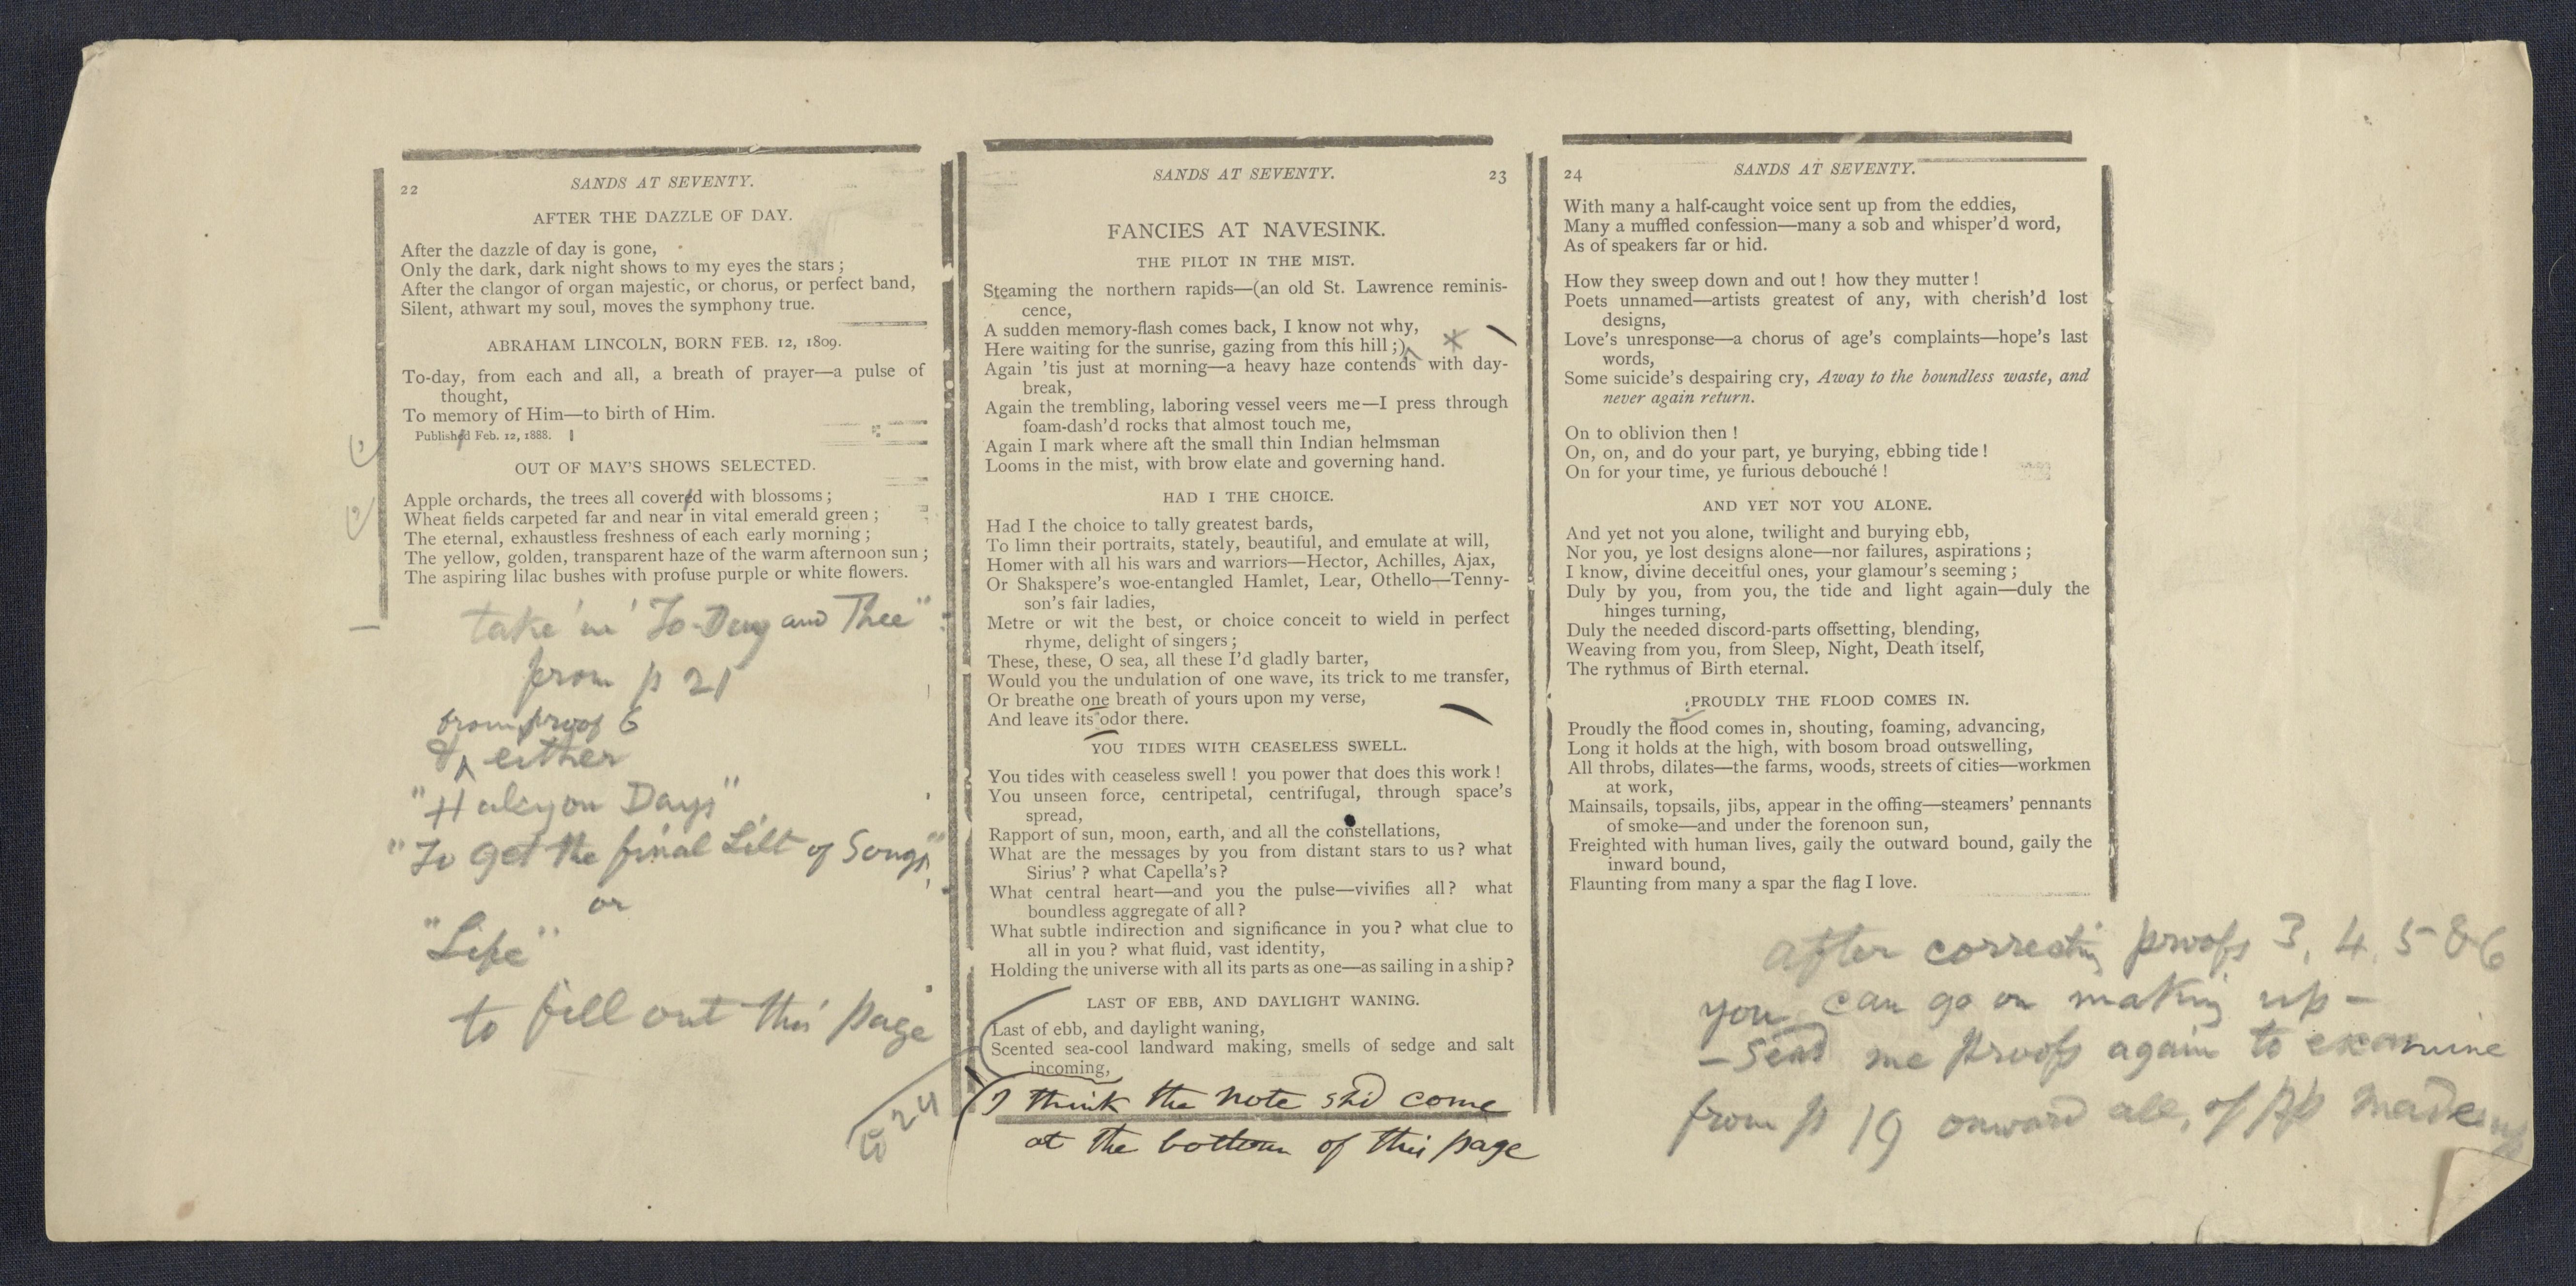 22
SANDS AT SEVENTY.
AFTER THE DAZZLE OF DAY.
After the dazzle of day is gone,
Only the dark, dark night shows to my eyes the stars;
After the clangor of organ majestic, or chorus, or perfect band,
Silent, athwart my soul, moves the symphony true.
ABRAHAM LINCOLN, BORN FEB. 12, 1809.
To-day, from each and all, a breath of prayer—a pulse of
thought,
To memory of Him—to birth of Him.
Published Feb. 12, 1888.
OUT OF MAY'S SHOWS SELECTED.
Apple orchards, the trees all covered with blossoms;
Wheat fields carpeted far and near in vital emerald green;
The eternal, exhaustless freshness of each early morning;
The yellow, golden, transparent haze of the warm afternoon sun;
The aspiring lilac bushes with profuse purple or white flowers.
take in "To-Day and Thee"
from p 21
from proof 6
& either
"Halcyon Days"
"To get the final Lilt of Songs"
or
"Life"
to fill out this page
SANDS AT SEVENTY.
23
FANCIES AT NAVESINK.
THE PILOT IN THE MIST.
Steaming the northern rapids—(an old St. Lawrence reminis-
cence,
A sudden memory-flash comes back, I know not why,
Here waiting for the sunrise, gazing from this hill;) *
Again 'tis just at morning—a heavy haze contends with day-
break,
Again the trembling, laboring vessel veers me—I press through
foam-dash'd rocks that almost touch me,
Again I mark where aft the small thin Indian helmsman
Looms in the mist, with brow elate and governing hand.
HAD I THE CHOICE.
Had I the choice to tally greatest bards,
To limn their portraits, stately, beautiful, and emulate at will,
Homer with all his wars and warriors—Hector, Achilles, Ajax,
Or Shakspere's woe-entangled Hamlet, Lear, Othello—Tenny-
son's fair ladies,
Metre or wit the best, or choice conceit to wield in perfect
rhyme, delight of singers;
These, these, O sea, all these I'd gladly barter,
Would you the undulation of one wave, its trick to me transfer,
Or breathe one breath of yours upon my verse,
And leave its odor there.
YOU TIDES WITH CEASELESS SWELL.
You tides with ceaseless swell! you power that does this work!
You unseen force, centripetal, centrifugal, through space's
spread,
Rapport of sun, moon, earth, and all the constellations,
What are the messages by you from distant stars to us? what
Sirius'? what Capella's?
What central heart—and you the pulse—vivifies all? what
boundless aggregate of all?
What subtle indirection and significance in you? what clue to
all in you? what fluid, vast identity,
Holding the universe with all its parts as one—as sailing in a ship?
LAST OF EBB, AND DAYLIGHT WANING.
Last of ebb, and daylight waning,
Scented sea-cool landward making, smells of sedge and salt
incoming,
to 24
I think the note sh'd come
at the bottom of this page
24
SANDS AT SEVENTY.
With many a half-caught voice sent up from the eddies,
Many a muffled confession—many a sob and whisper'd word,
As of speakers far or hid.
How they sweep down and out! how they mutter!
Poets unnamed—artists greatest of any, with cherish'd lost
designs,
Love's unresponse—a chorus of age's complaints—hope's last
words,
Some suicide's despairing cry, Away to the boundless waste, and
never again return.
On to oblivion then!
On, on, and do your part, ye burying, ebbing tide!
On for your time, ye furious debouché!
AND YET NOT YOU ALONE.
And yet not you alone, twilight and burying ebb,
Nor you, ye lost designs alone—nor failures, aspirations;
I know, divine deceitful ones, your glamour's seeming;
Duly by you, from you, the tide and light again—duly the
hinges turning,
Duly the needed discord-parts offsetting, blending,
Weaving from you, from Sleep, Night, Death itself,
The rythmus of Birth eternal.
PROUDLY THE FLOOD COMES IN.
Proudly the flood comes in, shouting, foaming, advancing,
Long it holds at the high, with bosom broad outswelling,
All throbs, dilates—the farms, woods, streets of cities—workmen
at work,
Mainsails, topsails, jibs, appear in the offing—steamers' pennants
of smoke—and under the forenoon sun,
Freighted with human lives, gaily the outward bound, gaily the
inward bound,
Flaunting from many a spar the flag I love.
after correcting proofs 3, 4, 5 & 6
you can go on making up—
—Send me proofs again to examine
from p 19 onward all, of pp made up